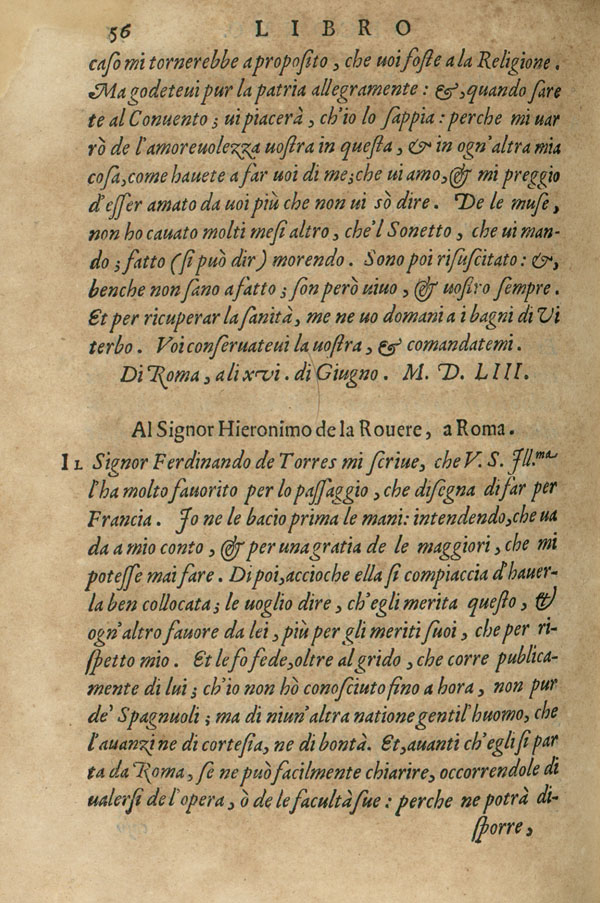 56 LIBRO
caso mi tornerebbe a proposito, che uoi foste a la Religione.
Ma godeteui pur la patria allegramente: &, quando sare
te al Conuento; ui piacerà, ch'io lo sappia: perche mi uar
rò de l'amoreuolezza uostra in questa, & in ogn'altra mia
cosa, come hauete a far uoi di me; che ui amo, & mi preggio
d'esser amato da uoi più che non ui sò dire. De le muse,
non ho cauato molti mesi altro, che'l Sonetto, che ui man-
do; fatto (si può dir) morendo. Sono poi risuscitato: &,
benche non sano afatto; son però uiuo, & uostro sempre.
Et per ricuperar la sanità, me ne uo domani a i bagni di Vi
terbo. Voi conseruateui la uostra, & comandatemi.
Di Roma, a li xvi. di Giugno. M. D. LIII.
Al Signor Hieronimo de la Rouere, a Roma.
IL Signor Ferdinando de Torres mi scriue, che V. S. Ill.ma
l'ha molto fauorito per lo passaggio, che disegna di far per
Francia. Io ne le bacio prima le mani: intendendo, che ua
da a mio conto, & per una gratia de le maggiori, che mi
potesse mai fare. Di poi, accioche ella si compiaccia d'hauer-
la ben collocata; le uoglio dire, ch'egli merita questo, &
ogn'altro fauore da lei, più per gli meriti suoi, che per ri-
spetto mio. Et le fo fede, oltre al grido, che corre publica-
mente di lui; ch'io non hò conosciuto fino a hora, non pur
de' Spagnuoli; ma di niun'altra natione gentil'huomo, che
l'auanzi ne di cortesia, ne di bontà. Et, auanti ch'egli si par
ta da Roma, se ne può facilmente chiarire, occorrendole di
ualersi de l'opera, ò de le facultà sue: perche ne potrà di-
sporre,